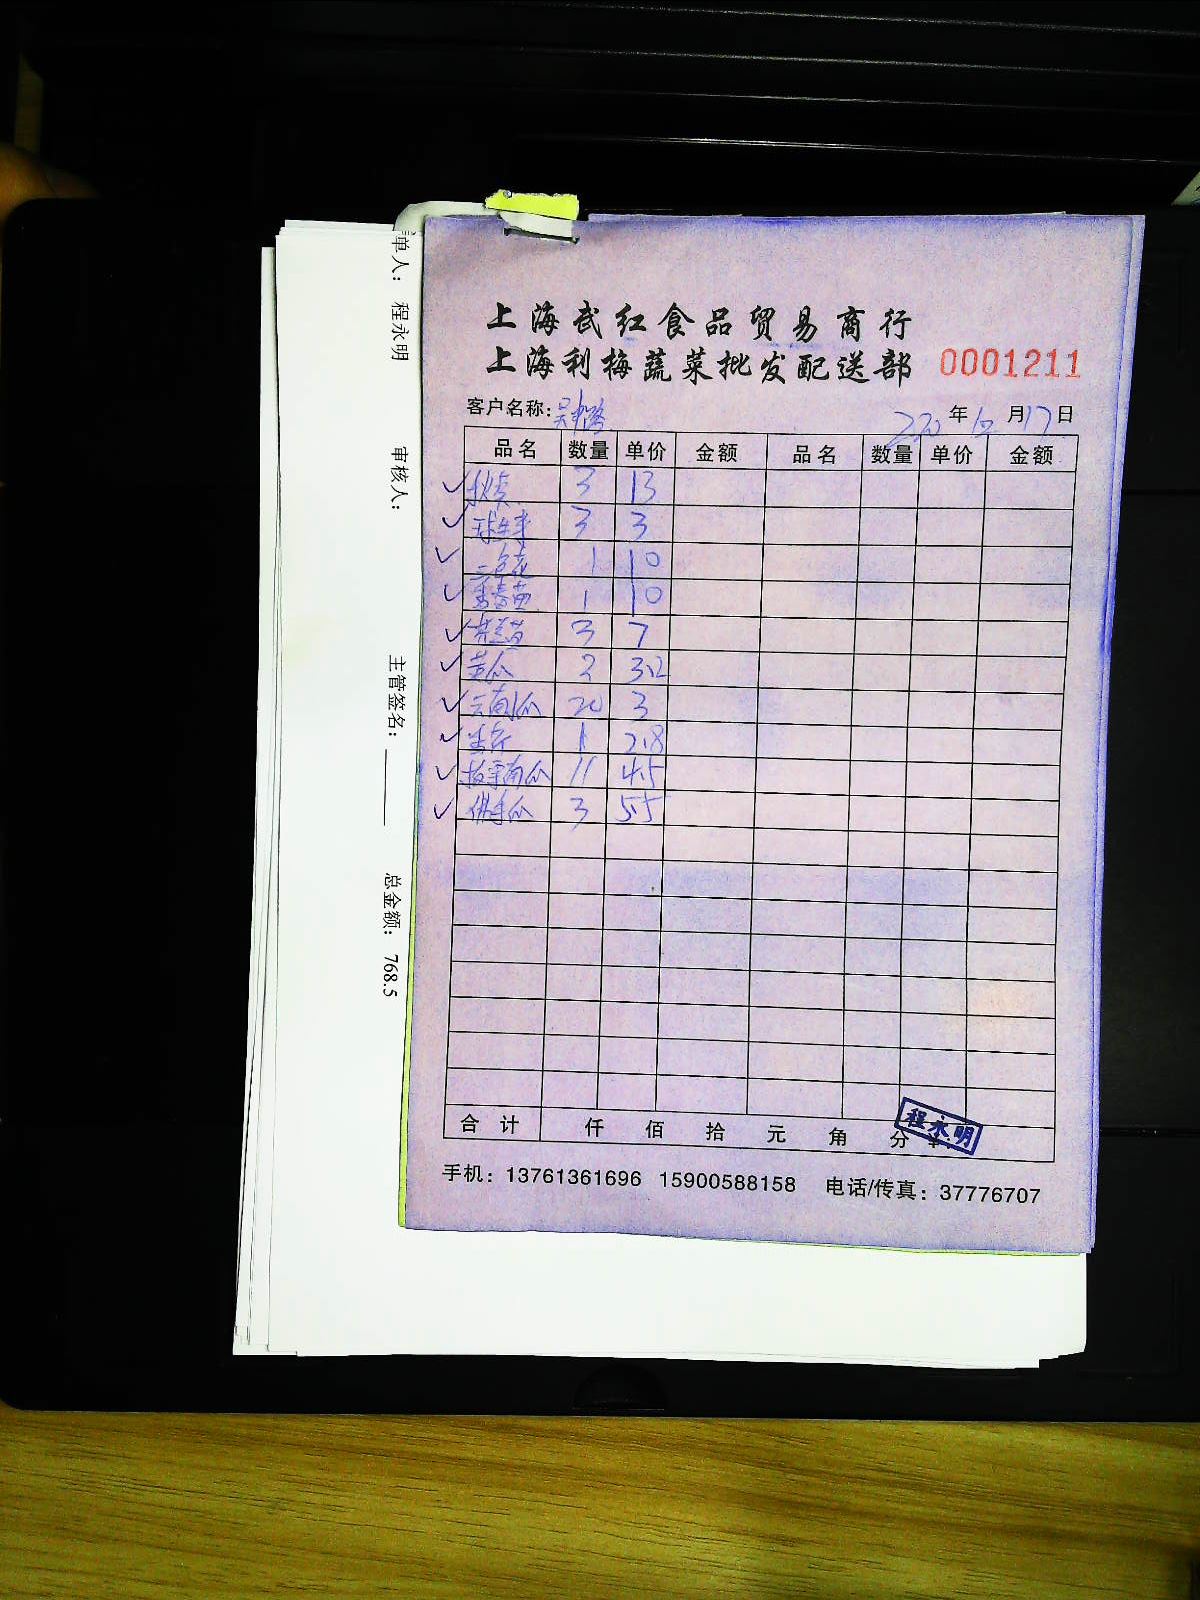 上海武红食品贸易商行
上海利梅蔬菜批发配送部 0001211
客户名称: 年 12 月 17 日
品名 数量 单价 金额 品名 数量 单价 金额
秋葵 3 13
球生菜 3 3
三色花 1 10
1 10
3 7
黄瓜 2 3.2
云南小瓜 20 3
1 2.8
板栗南瓜 11 4.5
佛手瓜 3 5.5
合计 仟 佰 拾 元 角 分 ¥:
程永明
手机: 13761361696 15900588158 电话/传真: 37776707
单人: 程永明 审核人: 主管签名: 总金额: 768.5